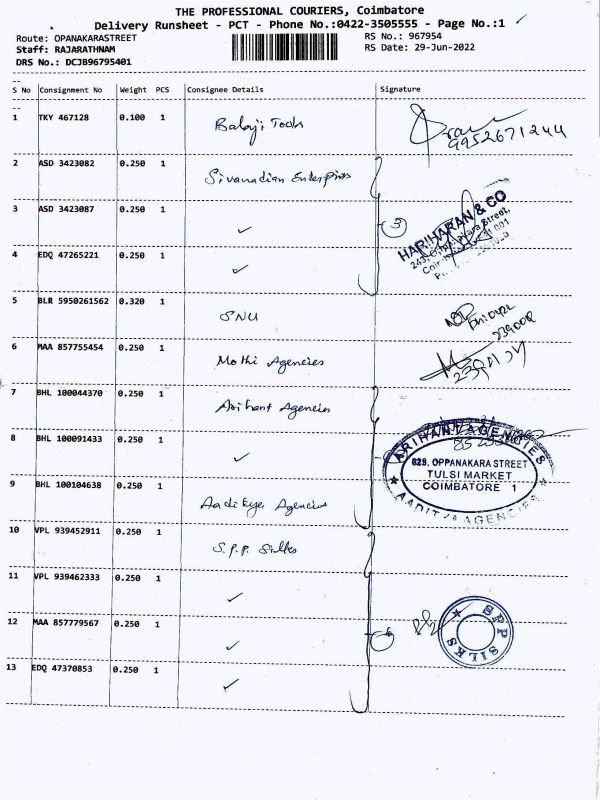 THE PROFESSIONAL COURIERS, Coimbatore
Delivery Runsheet - PCT - Phone No.:0422-3505555 - Page No.:1
Route: OPANAKARASTREET
RS No.: 967954
Staff: RAJARATHNAM
RS Date: 29-Jun-2022
DRS No.: DCJB96795401
S No Consignment No Weight PCS Consignee Details Signature
1 TKY 467128 0.100 1 Balaji Tools
9952671244
2 ASD 3423082 0.250 1 Sivanadian Enterprises
3 ASD 3423087 0.250 1 ✓ 3
HARIHARAN & CO
4 EDQ 47265221 0.250 1 ✓
5 BLR 5950261562 0.320 1 SNU
6 MAA 857755454 0.250 1 Mothi Agencies
7 BHL 100044370 0.250 1 Arihant Agencies
8 BHL 100091433 0.250 1 ✓
ARIHANT AGENCIES
629, OPPANAKARA STREET
TULSI MARKET
COIMBATORE 1
AADITJA AGENCIES
9 BHL 100104638 0.250 1 Aaditya Agencies
10 VPL 939452911 0.250 1 S.P.P. Silks
11 VPL 939462333 0.250 1 ✓
12 MAA 857779567 0.250 1 ✓
SPP SILKS
13 EDQ 47370853 0.250 1 ✓